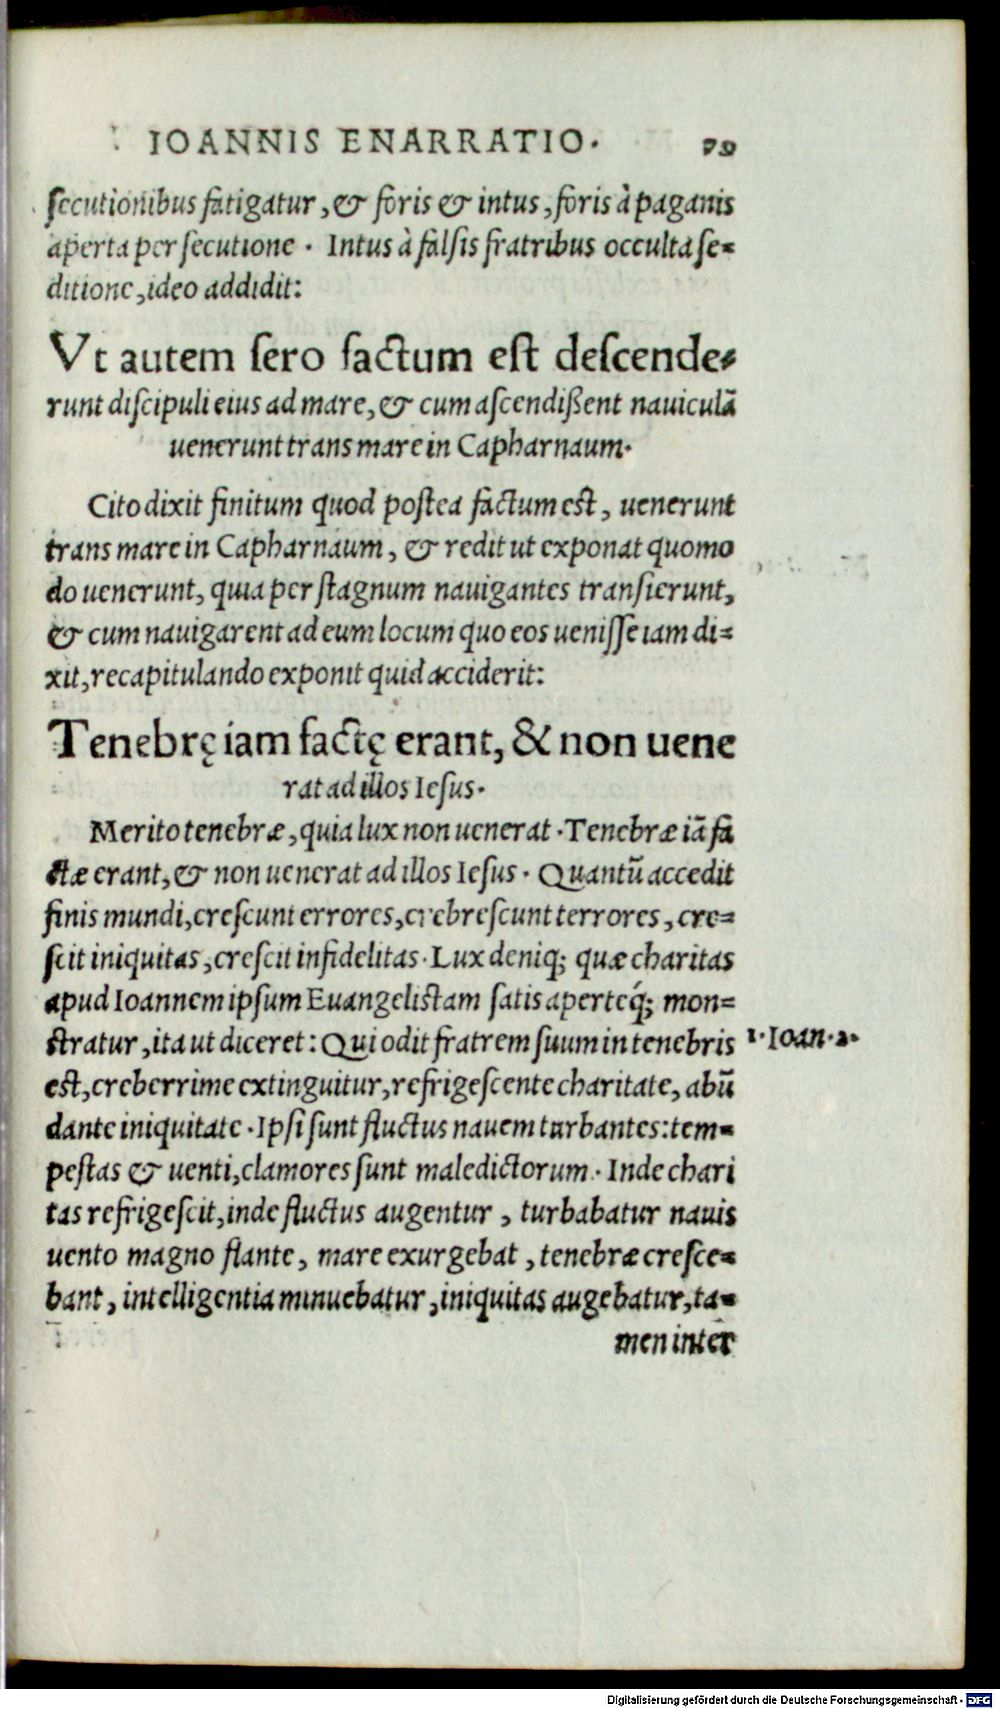 IOANNIS ENARRATIO. 79
secutionibus fatigatur, & foris & intus, foris à paganis
aperta persecutione. Intus à falsis fratribus occulta se-
ditione, ideo addidit:
Vt autem sero factum est descende-
runt discipuli eius ad mare, & cum ascendißent nauiculā
uenerunt trans mare in Capharnaum.
Cito dixit finitum quod postea factum est, uenerunt
trans mare in Capharnaum, & redit ut exponat quomo
do uenerunt, quia per stagnum nauigantes transierunt,
& cum nauigarent ad eum locum quo eos uenisse iam di-
xit, recapitulando exponit quid acciderit:
Tenebrę iam factę erant, & non uene
rat ad illos Iesus.
Merito tenebræ, quia lux non uenerat. Tenebræ iā fa
ctæ erant, & non uenerat ad illos Iesus. Quantū accedit
finis mundi, crescunt errores, crebrescunt terrores, cre-
scit iniquitas, crescit infidelitas. Lux deniq; quæ charitas
apud Ioannem ipsum Euangelistam satis aperteq́; mon-
stratur, ita ut diceret: Qui odit fratrem suum in tenebris 1. Ioan. 2.
est, creberrime extinguitur, refrigescente charitate, abū
dante iniquitate. Ipsi sunt fluctus nauem turbantes: tem-
pestas & uenti, clamores sunt maledictorum. Inde chari
tas refrigescit, inde fluctus augentur, turbabatur nauis
uento magno flante, mare exurgebat, tenebræ cresce-
bant, intelligentia minuebatur, iniquitas augebatur, ta-
men inter
Digitalisierung gefördert durch die Deutsche Forschungsgemeinschaft - DFG